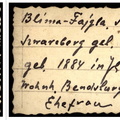 Blima-Fajgla,
Szwarcberg gel.
gel. 1884 in
wohnh. Bendsburg
Ehefrau